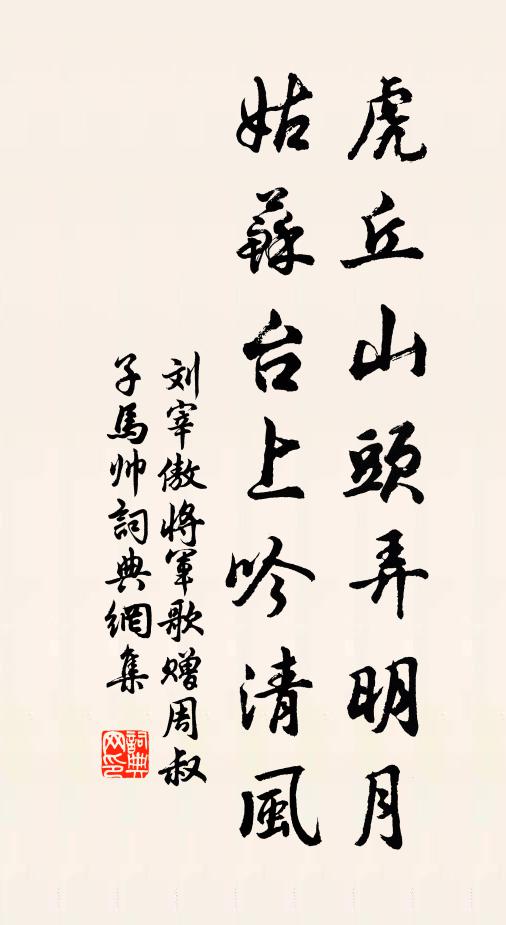 虎丘山頭弄明月
姑蘇台上吟清風
刘宰傲將軍歌赠周叔
子馬帅詞典網集
詞典網印